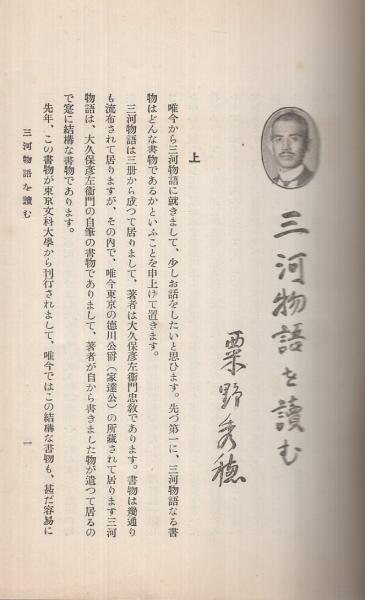 三河物語を讀む
粟野秀穗
上
唯今から三河物語に就きまして、少しお話をしたいと思ひます。先づ第一に、三河物語なる書
物はどんな書物であるかといふことを申上げて置きます。
三河物語は三册から成つて居りまして、著者は大久保彦左衞門忠敎であります。書物は幾通り
も流布されて居りますが、その内で、唯今東京の德川公爵（家達公）の所藏されて居ります三河
物語は、大久保彦左衞門の自筆の書物でありまして、著者が自から書きました物が遺つて居るの
で寔に結構な書物であります。
先年、この書物が東京文科大學から刊行されまして、唯今ではこの結構な書物も、甚だ容易に
三河物語を讀む
一